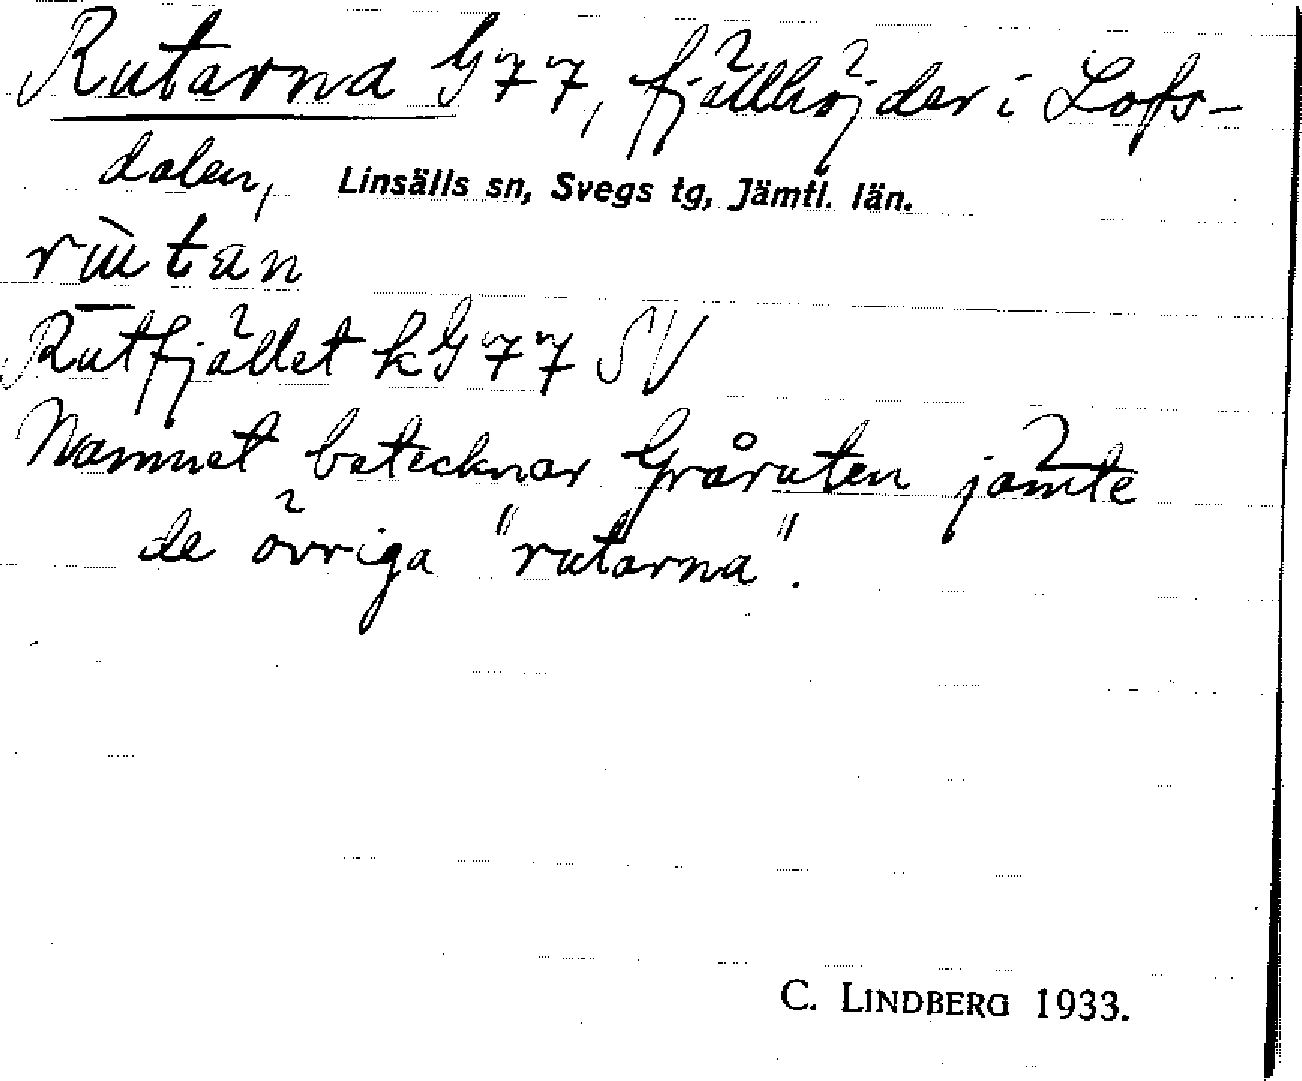 Rutarna G77, fjällhöjder i Lofs-
dalen, Linsälls sn, Svegs tg, Jämtl. län.
rùtan
Rutfjället kG77 SV
Namnet betecknar Gråruten jämte
de övriga "rutarna".
C. LINDBERG 1933.